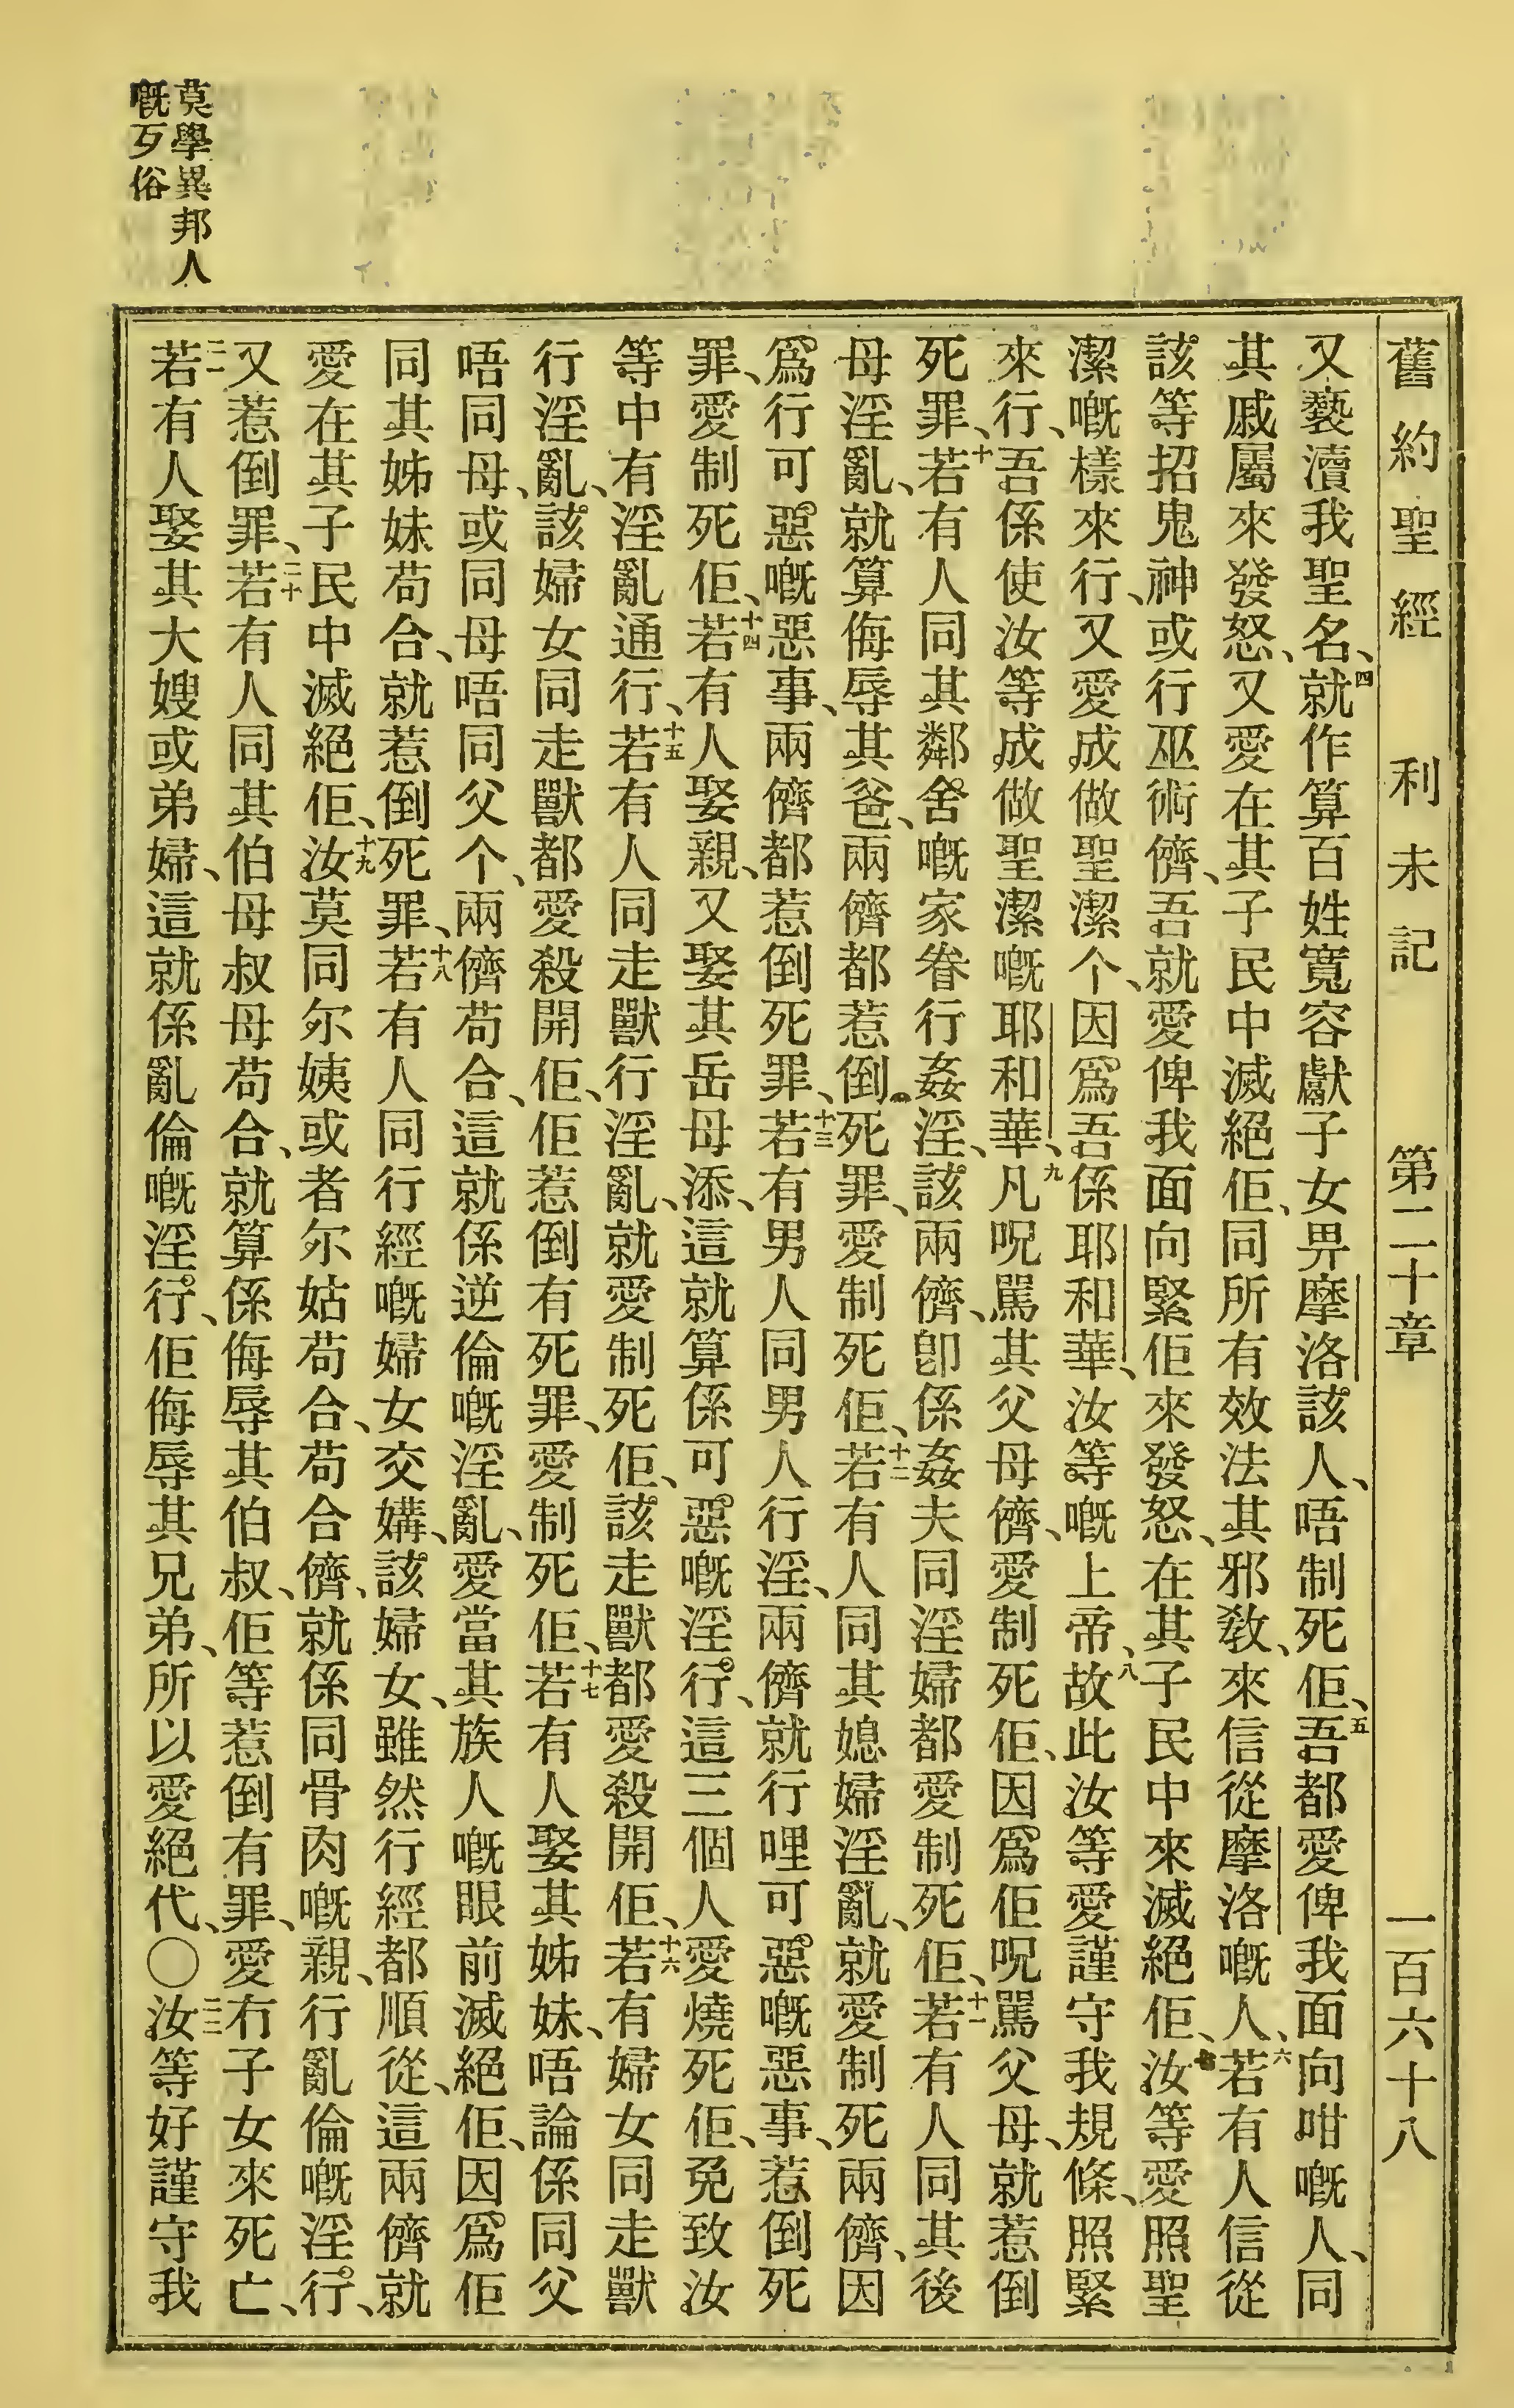 舊約聖經 利未記 第二十章 一百六十八
又褻瀆我聖名、四就作算百姓寬容獻子女畀摩洛該人、唔制死佢、五吾都愛俾我面向咁嘅人、同
其戚屬來發怒、又愛在其子民中滅絕佢、同所有效法其邪教、來信從摩洛嘅人、六若有人信從
該等招鬼神或行巫術儕、吾就愛俾我面向緊佢來發怒、在其子民中來滅絕佢、七汝等愛照聖
潔嘅樣來行、又愛成做聖潔个、因爲吾係耶和華、汝等嘅上帝、八故此汝等愛謹守我規條、照緊
來行、吾係使汝等成做聖潔嘅耶和華、九凡呪駡其父母儕、愛制死佢、因爲佢呪駡父母、就惹倒
死罪、十若有人同其鄰舍嘅家眷行姦淫、該兩儕、卽係姦夫同淫婦都愛制死佢、十一若有人同其後
母淫亂、就算侮辱其爸、兩儕都惹倒死罪、愛制死佢、十二若有人同其媳婦淫亂、就愛制死兩儕、因
爲行可惡嘅惡事、兩儕都惹倒死罪、十三若有男人同男人行淫、兩儕就行哩可惡嘅惡事、惹倒死
罪、愛制死佢、十四若有人娶親、又娶其岳母添、這就算係可惡嘅淫行、這三個人愛燒死佢、免致汝
等中有淫亂通行、十五若有人同走獸行淫亂、就愛制死佢、該走獸都愛殺開佢、十六若有婦女同走獸
行淫亂、該婦女同走獸都愛殺開佢、佢惹倒有死罪、愛制死佢、十七若有人娶其姊妹、唔論係同父
唔同母、或同母唔同父个、兩儕苟合、這就係逆倫嘅淫亂、愛當其族人嘅眼前滅絕佢、因爲佢
同其姊妹苟合、就惹倒死罪、十八若有人同行經嘅婦女交媾、該婦女、雖然行經都順從、這兩儕就
愛在其子民中滅絕佢、十九汝莫同尔姨或者尔姑苟合、苟合儕、就係同骨肉嘅親、行亂倫嘅淫行、
又惹倒罪、二十若有人同其伯母叔母苟合、就算係侮辱其伯叔、佢等惹倒有罪、愛冇子女來死亡、
二一若有人娶其大嫂或弟婦、這就係亂倫嘅淫行、佢侮辱其兄弟、所以愛絕代、〇二二汝等好謹守我
莫學異邦人
嘅歹俗